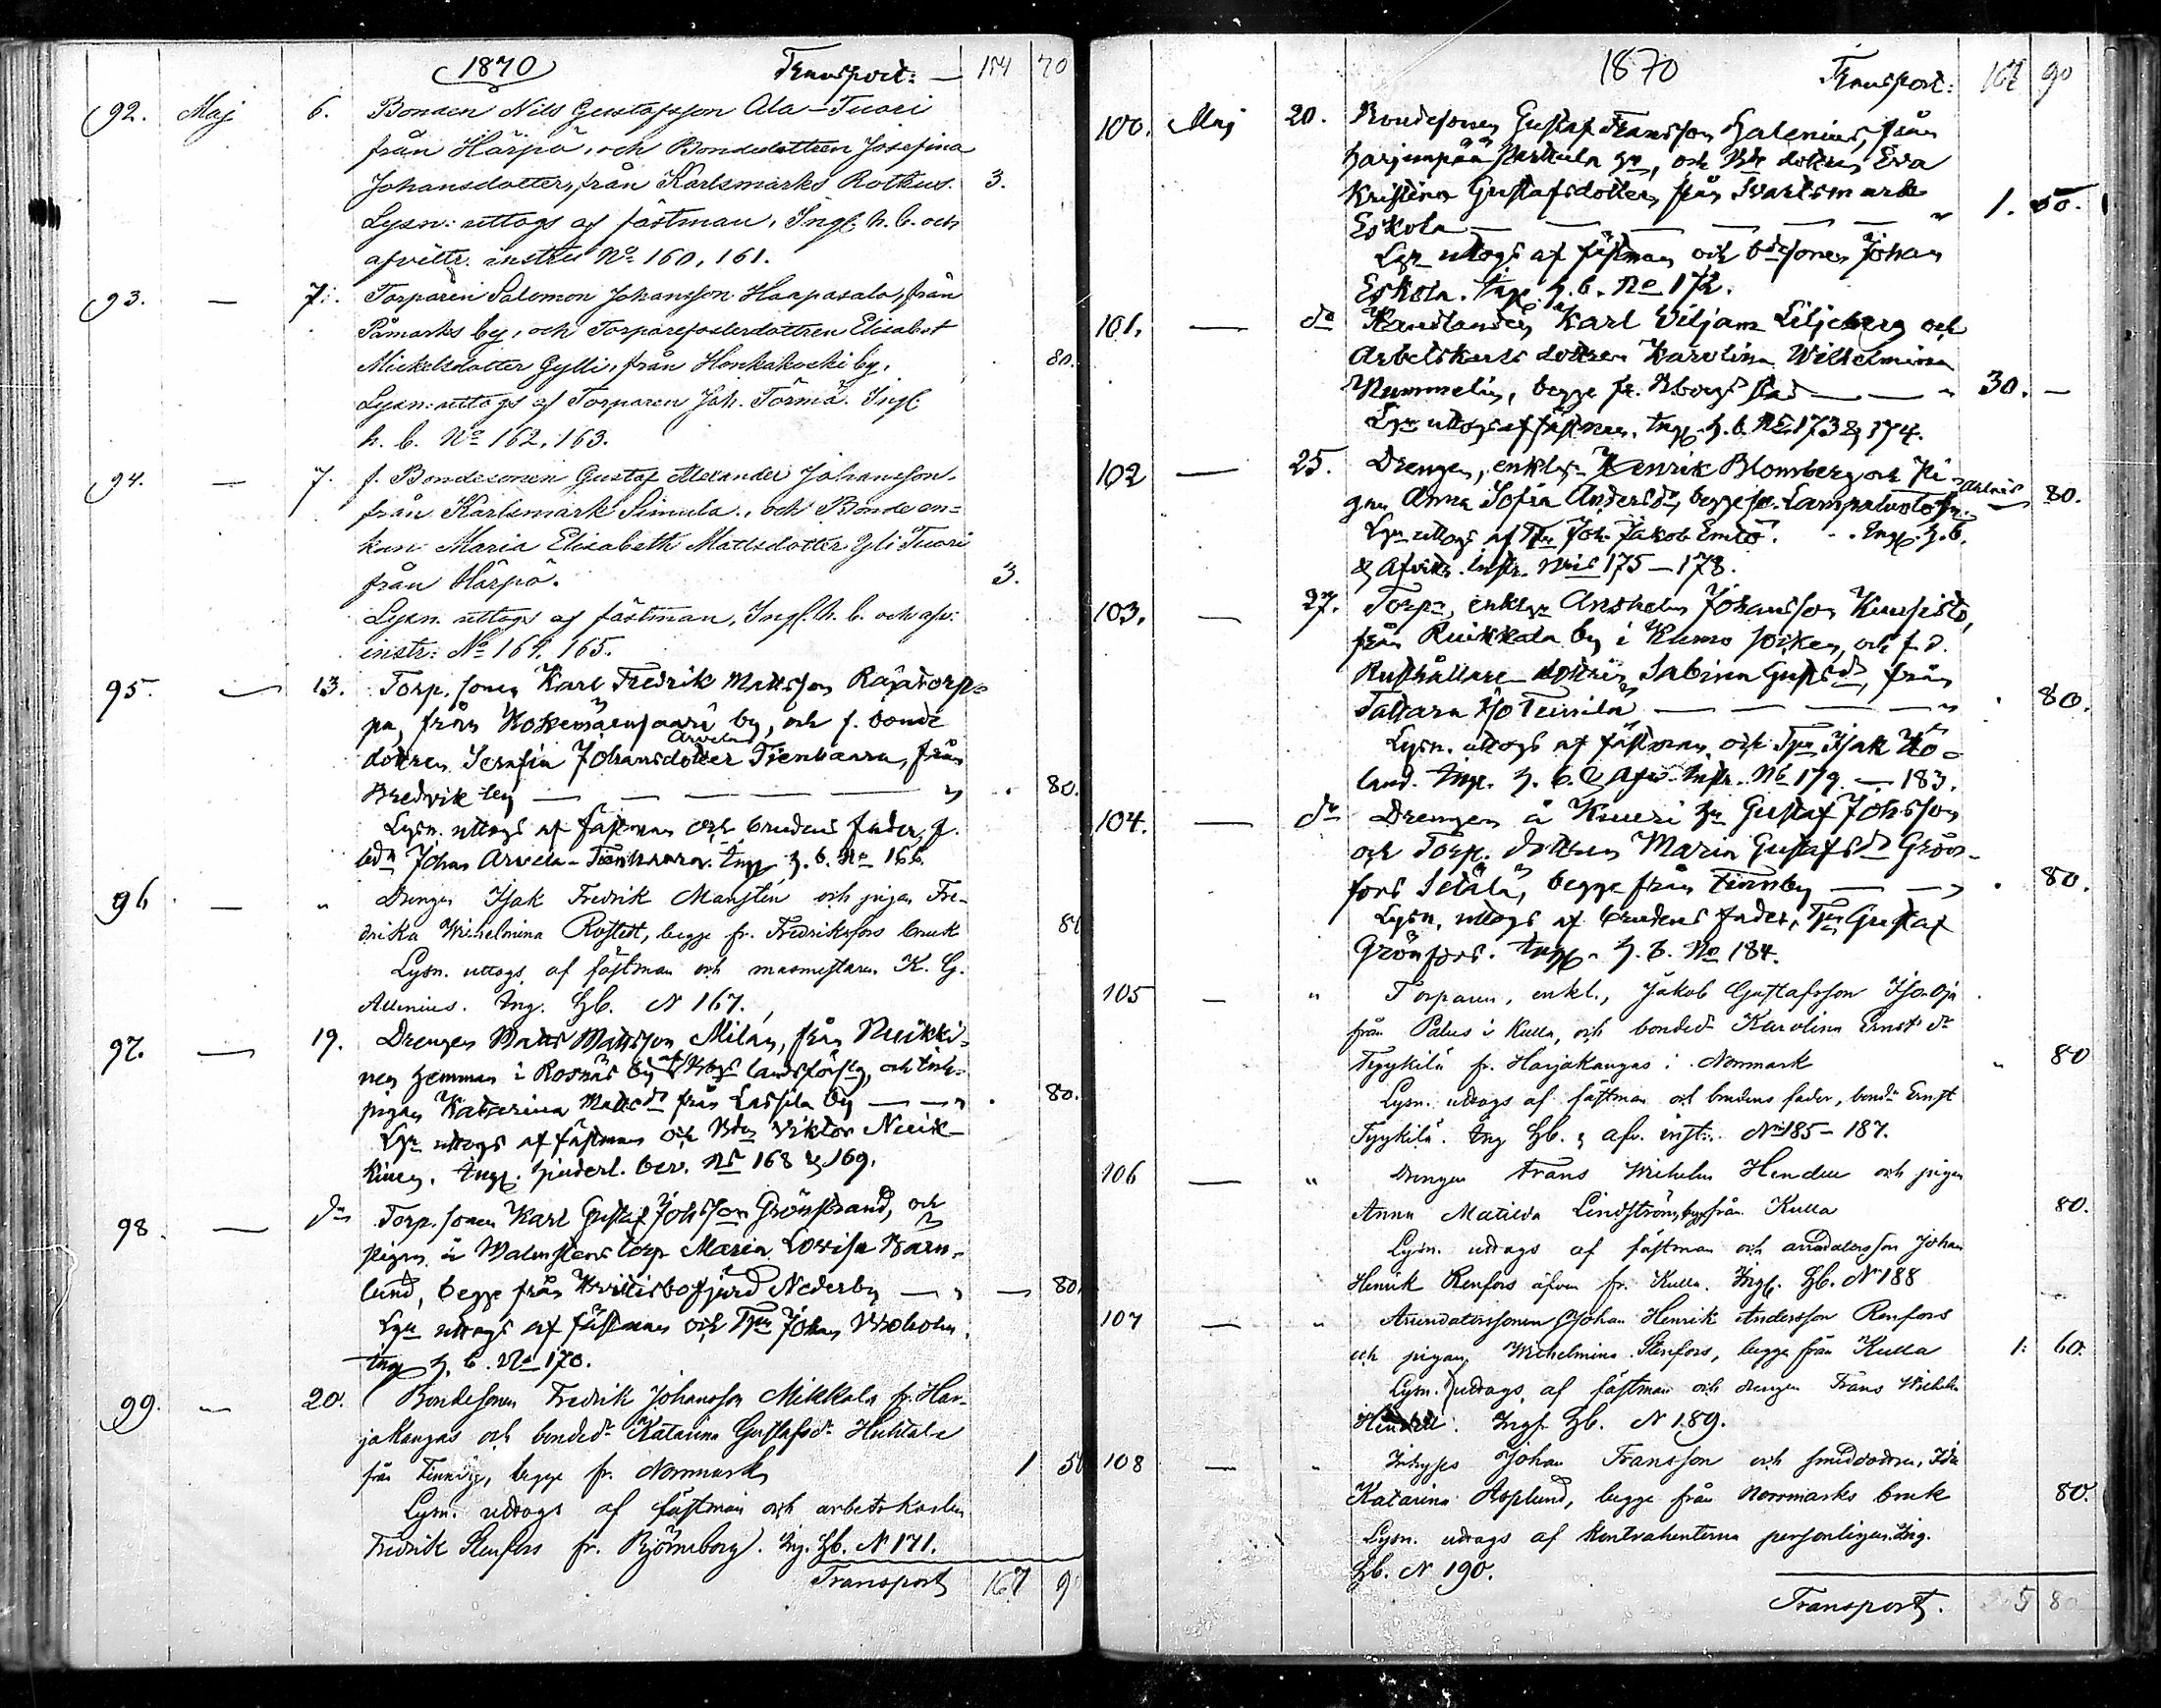 1870 Transport: — 154 70
92. Maj 6. Bonden Nils Gustafsson Ala-Tuori
från Härpö, och Bondedottren Josefina
Johansdotter, från Karlsmarks Rotkus. 3.
Lysn: uttogs af fästman, Ingf. h. b. och
afvittr. instr No 160, 161.
93. — 7. Torparen Salomon Johansson Haapasalo, från
Påmarks by, och Torparefosterdottren Elisabet
Mickelsdotter Gylli, från Honkakoski by. 80.
Lysn: uttogs af Torparen Joh. Törmä. Ingf.
h. b. No 162, 163.
94. — 7. f. Bondesonen Gustaf Alexander Johansson,
från Karlsmark Simula, och Bonde en=
kan Maria Elisabeth Mattsdotter Yli Tuori
från Härpö. 3.
Lysn. uttogs af fästman, Ingf. h. b. och afv:
instr: No 164. 165.
95. — 13. Torp. sonen Karl Fredrik Mattsson Räjätorp=
pa, från Kokemäensaari by, och f. bonde
dottren Serafia Johansdotter Arvela Tienhaara, från
Bredvik by — — — — — " . 80.
Lysn. uttogs af fästman och brudens fader, f.
bdn Johan Arvela-Tienhaara. Ingf. h. b. No 166.
96. — " Drengen Isak Fredrik Manstén och pigan Fre-
drika Wilhelmina Rostedt, begge fr. Fredriksfors bruk 80
Lysn. uttogs af fästman och masmästaren K. G.
Allenius. Ing. Hb. N 167.
97. — 19. Drengen Matts Mattsson Milán, från Nuikki-
nen hemman i Rosnäs by af Kbgs landsförslg, och Inh-
pigan Katarina Mattsdr från Lassila by — — " . 80.
Lysn uttogs af fästman och Bden Viktor Nuik-
kinen. Ingf. hinderl. bev. No 168 & 169.
98. — do Torp. sonen Karl Gustaf Johsson Grönstrand, och
pigan å Walmstens torp Maria Lovisa Barn-
lund, begge från Hvittisbofjerd Nederby — " — 80.
Lysn uttogs af fästman och Tpn Johan Boholm.
Ingf. h. b. No 170.
99. — 20. Bondesonen Fredrik Johansson Mikkola fr. Har-
jakangas och bondedr Katarina Gustafsdr Huhtala
från Finnby, begge fr. Norrmark 1 50
Lysn. uttogs af fästman och arbetskarlen
Fredrik Stenfors fr. Björneborg. Ing. Hb. N 171.
Transport 167 9
1870 Transport: 167 90
100. Maj 20. Bondesonen Gustaf Fransson Galenius, från
Harjunpää Perkula hn, och Bde dottren Eva
Kristina Gustafsdotter, från Svartsmark
Eskola — — — — — " 1. 50.
Lysn uttogs af fästman och bdesonen Johan
Eskola. Ingf. h. b. No 172.
101. — do Handlanden Karl Viljam Liljeberg och
Arbetskarls dottren Karolina Wilhelmina
Nummelin, begge fr. Bborgs stad — — " 30. —
Lysn uttogs af fästman. Ingf. h. b. No 173 & 174.
102 — 25. Drengen, enkln Henrik Blomberg och Pi-
gan Anna Sofia Andersdr, begge fr. Lampaluoto by. — 80.
Lysn uttogs af Tpn Joh. Jakob Emto. . . Ingf. h. b.
& Afvittr. instr. Nris 175 — 178.
103. — 27. Torpn, enkln Anshelm Johansson Kuusisto,
från Ruikkala by i Kumo socken, och f. d.
Rusthållare dottren Sabina Gustsdr, från
Tattara Iso Teinilä — — — — " . 80.
Lysn. uttogs af fästman och Tpn Isak Hö-
land. Ingf. h. b. & Afv. instr. No 179 — 183.
104. — do Drengen å Knueri hn Gustaf Johsson
och Torp. dottren Maria Gustafsdr Grön-
fors Setälä, begge från Finnby — — " . 80.
Lysn. uttogs af brudens fader, Tpn Gustaf
Grönfors. Ingf. h. b. No 184.
105 — " Torparen, enkl., Jakob Gustafsson Iso-Oja
från Palus i Kulla, och bondedr Karolina Ernstsdr
Tyykilä fr. Harjakangas i Norrmark " 80
Lysn. uttogs af fästman och brudens fader, bonden Ernst
Tyykilä. Ing Hb. & afv. instr. Nris 185 – 187.
106 — " Drengen Frans Wilhelm Hendell och pigan
Anna Matilda Lindström, begge från Kulla 80.
Lysn. uttogs af fästman och arrendatorsson Johan
Henrik Renfors äfven fr. Kulla. Ingf. Hb. No 188
107 — " Arrendatorssonen Johan Henrik Andersson Renfors
och pigan Wilhelmina Stenfors, begge från Kulla 1: 60.
Lysn. uttogs af fästman och drengen Frans Wilhelm
Hendell. Ingf. Hb. N 189.
108 — " Inhyses Johan Fransson och smeddottren Ida
Katarina Asplund, begge från Norrmarks bruk 80.
Lysn. uttogs af kontrahenterna personligen. Ing.
Hb. N 190.
Transport. 5 8